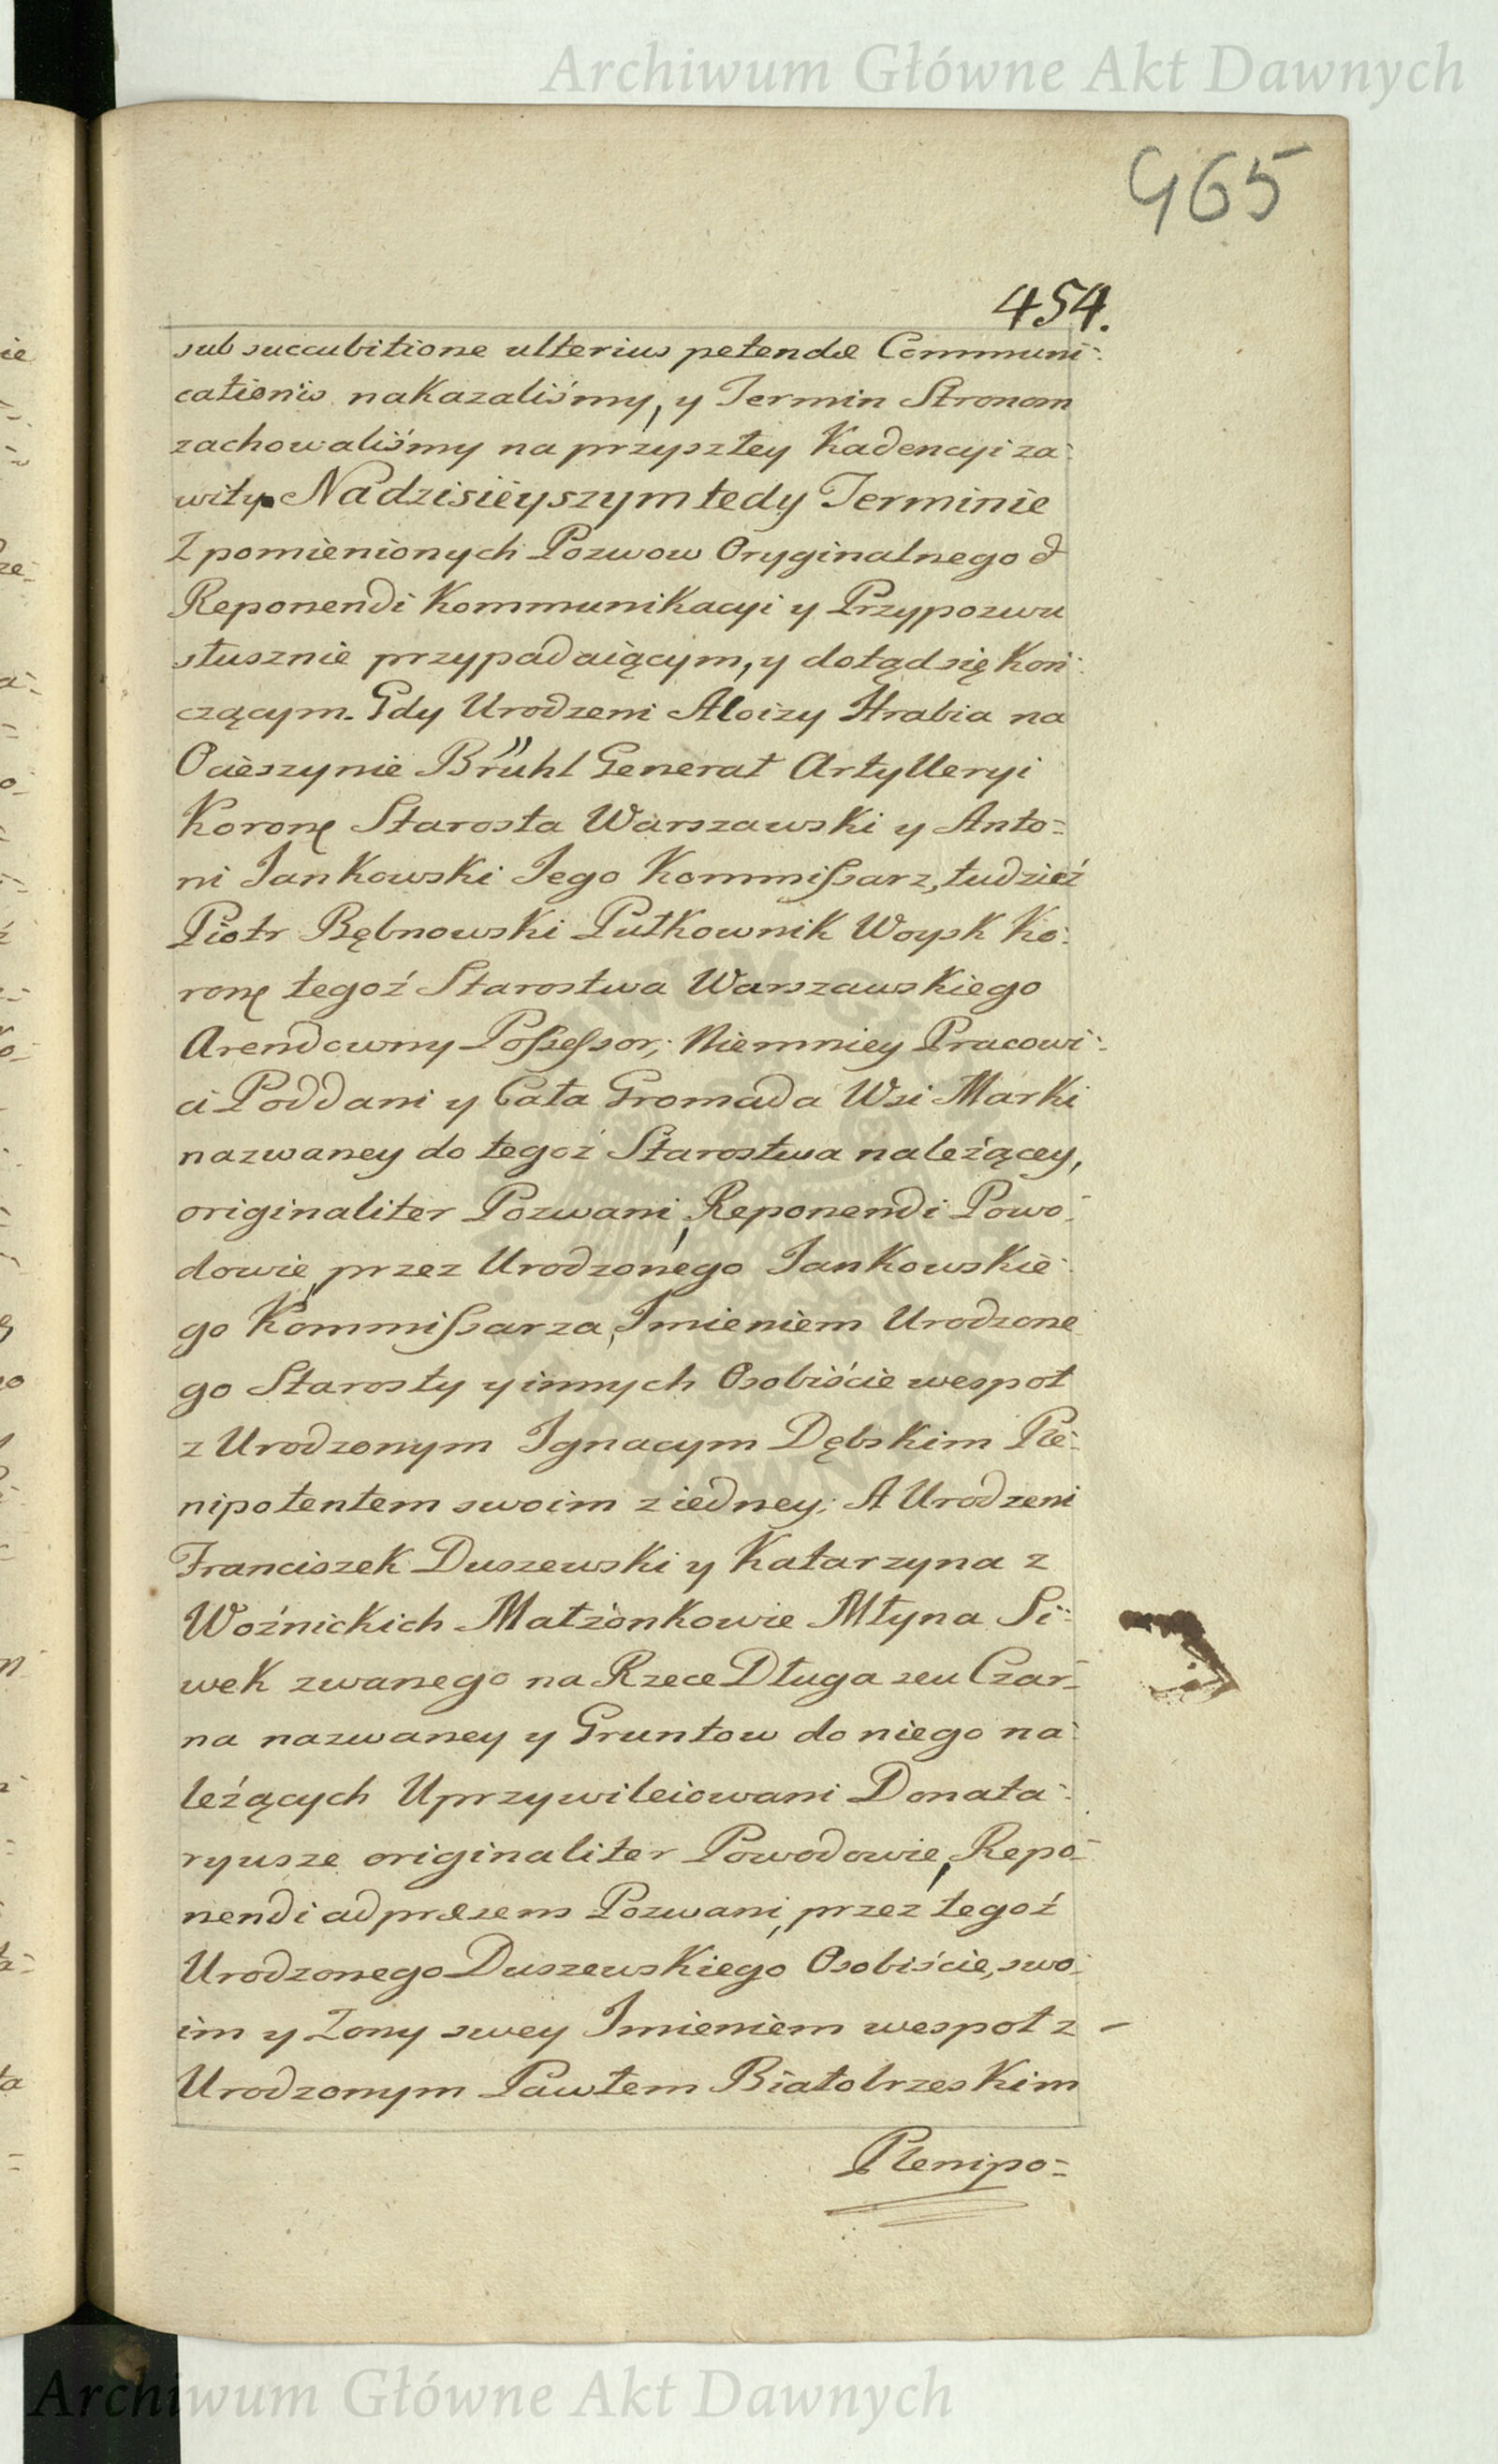 Archiwum Główne Akt Dawnych
465
454.
sub succubitione ulterius petendæ Communi-
cationis nakazaliśmy, y Termin Stronom
zachowaliśmy na przyszłey Kadencyi za-
wity. Na dzisieyszym tedy Terminie
Z pomienionych Pozwow Oryginalnego &
Reponendi Kommunikacyi y Przypozwu
słusznie przypadaiącym, y dotąd się koń-
czącym. Gdy Urodzeni Aloizy Hrabia na
Ocieszynie Brühl Generał Artylleryi
Koronę Starosta Warszawski y Anto=
ni Jankowski Jego Kommissarz, tudzież
Piotr Bębnowski Pułkownik Woysk Ko-
ronę tegoż Starostwa Warszawskiego
Arendowny Possessor; Niemniey Pracowi-
ci Poddani y Cała Gromada Wsi Marki
nazwaney do tegoż Starostwa należącey,
originaliter Pozwani, Reponendi Powo-
dowie, przez Urodzonego Jankowskie-
go Kommissarza, Imieniem Urodzone
go Starosty y innych Osobiście wespoł
z Urodzonym Ignacym Dębskim Ple-
nipotentem swoim z iedney; A Urodzeni
Franciszek Duszewski y Katarzyna z
Woźnickich Małżonkowie Młyna Si-
wek zwanego na Rzece Długa seu Czar-
na nazwaney y Gruntow do niego na-
leżących Uprzywileiowani Donata-
ryusze originaliter Powodowie, Repo-
nendi ad præsens Pozwani, przez tegoż
Urodzonego Duszewskiego Osobiście, swo-
im y Zony swey Imieniem wespoł z -
Urodzonym Pawłem Białobrzeskim
Plenipo=
Archiwum Główne Akt Dawnych